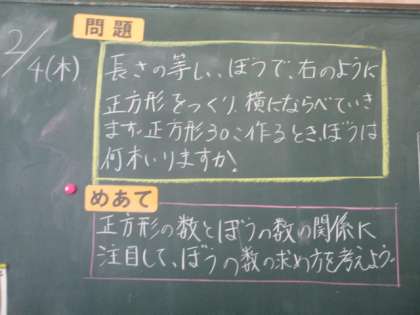 2/4(木)
問題
長さの等しい、ぼうで、右のように
正方形をつくり、横にならべていき
ます。正方形30こ作るとき、ぼうは
何本いりますか!
めあて
正方形の数とぼうの数の関係に
注目して、ぼうの数の求め方を考えよう。